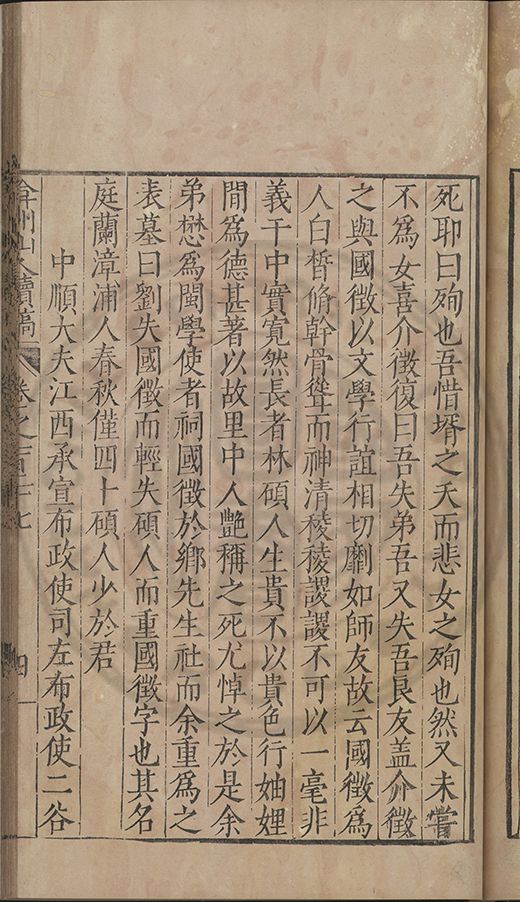 死耶曰殉也吾惜壻之夭而悲女之殉也然又未嘗
不爲女喜介徵復曰吾失弟吾又失吾良友盖介徵
之與國徵以文學行誼相切劘如師友故云國徵爲
人白皙脩幹骨聳而神清稜稜謖謖不可以一毫非
義干中實寬然長者林碩人生貴不以貴色行妯娌
間爲德甚著以故里中人艶稱之死尤悼之於是余
弟懋爲閩學使者祠國徵於鄉先生社而余重爲之
表墓曰劉失國徵而輕失碩人而重國徵字也其名
庭蘭漳浦人春秋僅四十碩人少於君
中順大夫江西承宣布政使司左布政使二谷
弇州山人續稿 卷之一百二十七 四